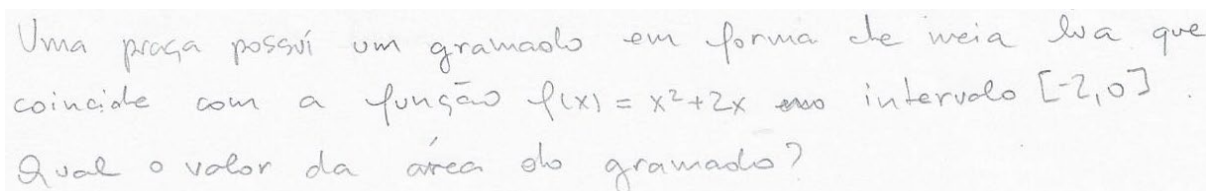 Uma praça possuí um gramado em forma de meia lua que
coincide com a função f(x) = x²+2x no intervalo [-2,0].
Qual o valor da área do gramado?